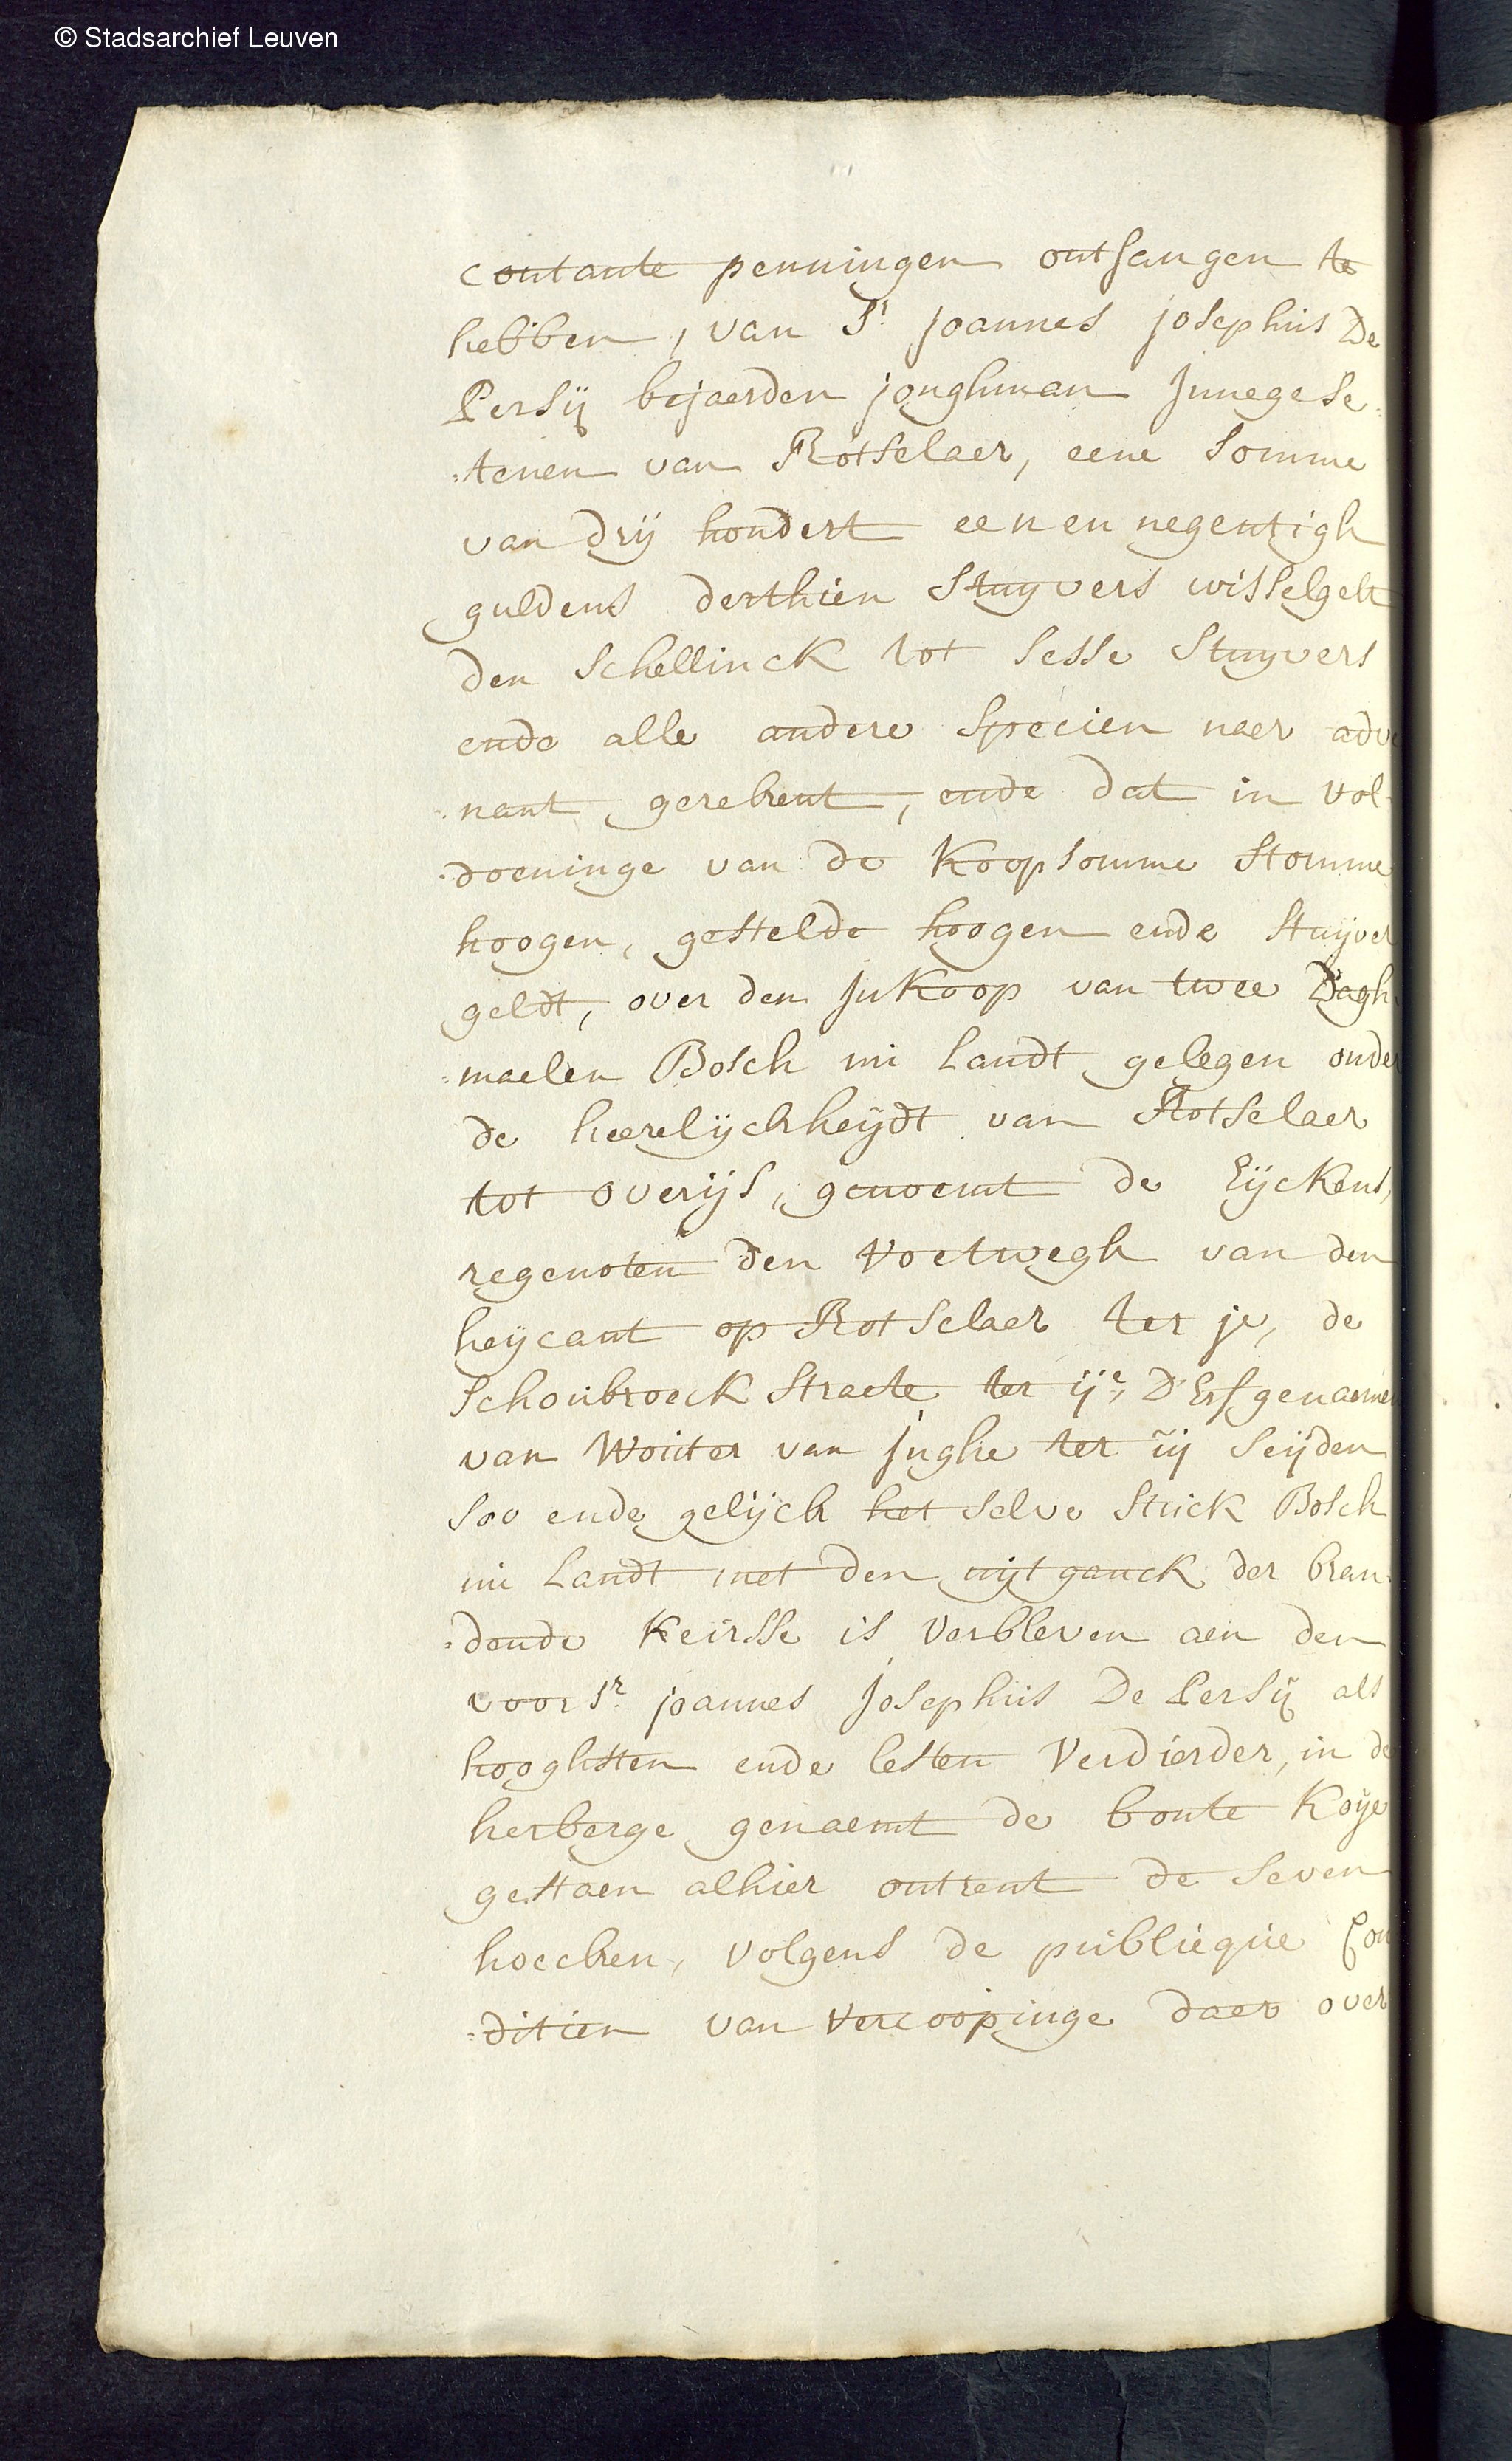 © Stadsarchief Leuven
contante penningen ontfangen te
hebben, van Sr. joannes josephus De
Persÿ bejaerden jonghman Innegese=
=tenen van Rotselaer, eene somme
van drÿ hondert eenennegentigh
guldens derthien stuyvers wisselgelt
den schellinck tot sesse stuyvers
ende alle andere specien naer adve
=nant gerekent, ende dat in vol=
=doeninge van de koopsomme stomme
hoogen, gestelde hoogen ende stuÿver
geldt, over den Inkoop van twee Dagh
=maelen Bosch nu Landt gelegen onder
de heerelÿckheÿdt van Rotselaer
tot overÿs, genoemt de Eÿckens,
regenoten den Voetwegh van den
heÿcant op Rotselaer ter je, de
schoubroeck straete ter ije, D'Erfgenaemen
van Wouter van Inghe ter iij seÿden
soo ende gelÿck het selve stuck Bosch
nu Landt met den uÿtganck der bran=
=dende keirsse is verbleven aen den
voorsr. joannes Josephus De Persÿ als
hooghsten ende lesten Verdierder, in de
herberge genaemt de bonte Koÿe
gestaen alhier ontrent de seven
hoecken, volgens de publieque Con
=ditien van vercoopinge daer over